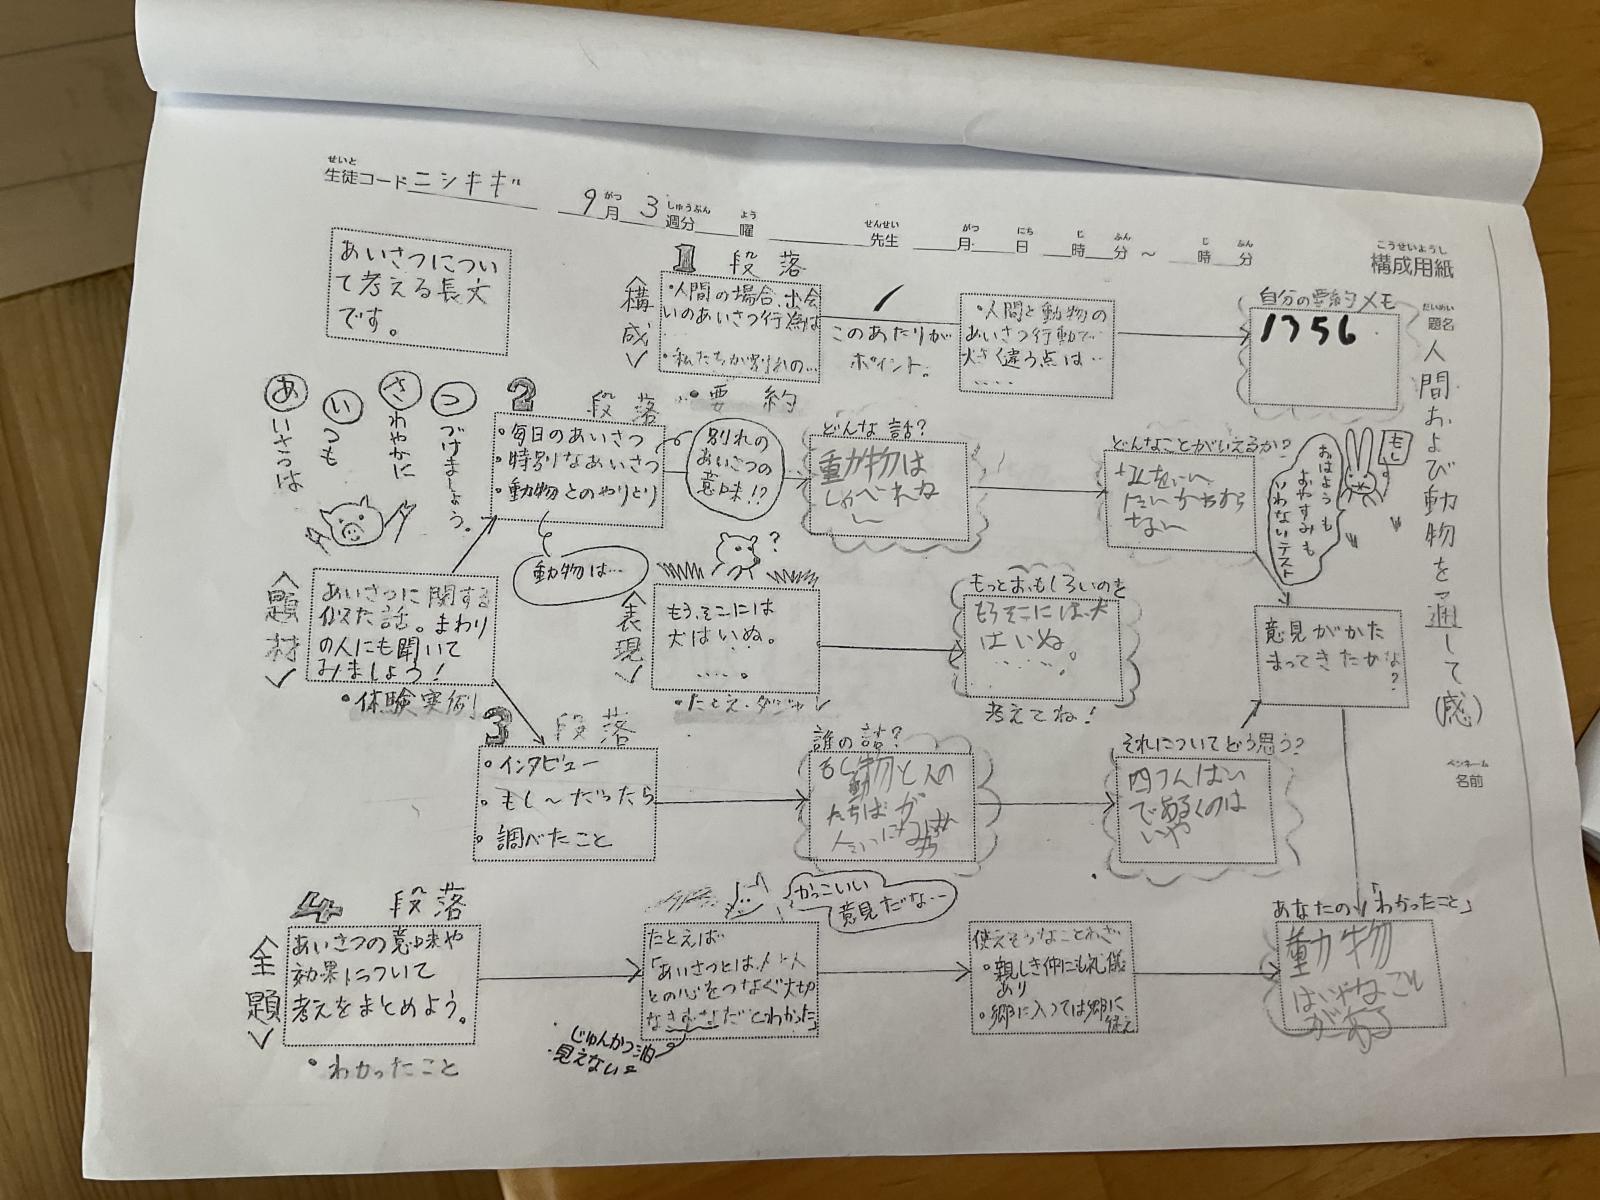 せいと
生徒コード ニシキギ
9月がつ 3週分しゅうぶん 曜よう 先生せんせい 月がつ 日にち 時じ 分ふん ～ 時じ 分ふん
こうせいようし
構成用紙
だいめい
題名
人間および動物を通して(感)
ペンネーム
名前
あいさつについ
て考える長文
です。
1 段落
〈構成〉
・人間の場合、出会
いのあいさつ行為は
・私たちが別れの…
このあたりが
ポイント。
・人間と動物の
あいさつ行動で
大きく違う点は…
‥‥
自分の要約メモ
1356
あいさつは
いつも
さわやかに
つづけましょう。
2 段落
・要約
・毎日のあいさつ
・特別なあいさつ
・動物とのやりとり
別れの
あいさつの
意味!?
動物は…
どんな話?
動物は
しゃべれね
〜
どんなことがいえるか?
ない
もし
おはようも
おやすみも
いわないテスト
〈題材〉
あいさつに関する
似た話。まわり
の人にも聞いて
みましょう!
・体験実例
?
〈表現〉
もう、そこには
犬はいぬ。
‥‥。
・たとえ・ダジャレ
もっとおもしろいのを
もうそこには、犬
はいぬ。
‥‥。
考えてね!
意見がかた
まってきたかな?
3 段落
・インタビュー
・もし〜だったら
・調べたこと
誰の話?
もし動物と人の
たちばが
それについてどう思う?
四つんばい
であるくのは
いや
4 段落
〈全題〉
あいさつの意味や
効果について
考えをまとめよう。
・わかったこと
かっこいい
意見だな…
たとえば
「あいさつとは、人と人
との心をつなぐ大切
なきずなだとわかった」
じゅんかつ油
見えない
使えそうなことわざ
・親しき仲にも礼儀
あり
・郷に入っては郷に
従え
あなたの「わかったこと」
動物
はいやなこと
がある